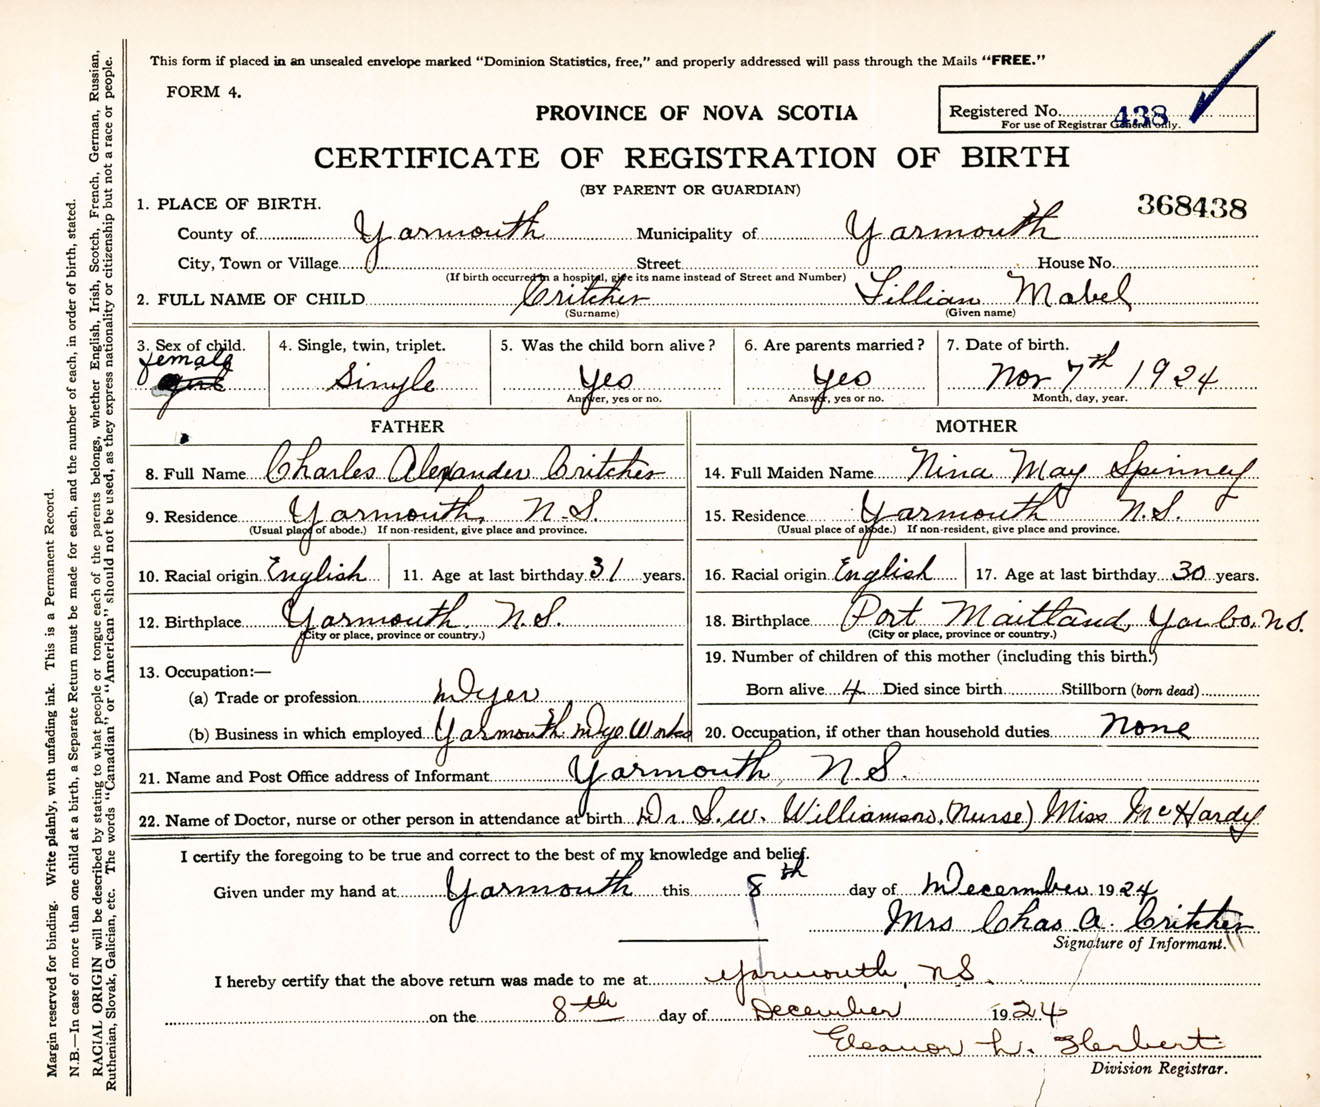 This form if placed in an unsealed envelope marked "Dominion Statistics, free," and properly addressed will pass through the Mails "FREE."
FORM 4.
PROVINCE OF NOVA SCOTIA
Registered No. 438
For use of Registrar General only.
CERTIFICATE OF REGISTRATION OF BIRTH
(BY PARENT OR GUARDIAN)
368438
1. PLACE OF BIRTH.
County of Yarmouth Municipality of Yarmouth
City, Town or Village Street House No.
(If birth occurred in a hospital, give its name instead of Street and Number)
2. FULL NAME OF CHILD Critcher Lillian Mabel
(Surname) (Given name)
3. Sex of child. 4. Single, twin, triplet. 5. Was the child born alive? 6. Are parents married? 7. Date of birth.
female
girl Single Yes Yes Nov 7th 1924
Answer, yes or no. Answer, yes or no. Month, day, year.
FATHER MOTHER
8. Full Name Charles Alexander Critcher 14. Full Maiden Name Nina May Spinney
9. Residence Yarmouth, N.S. 15. Residence Yarmouth N.S.
(Usual place of abode.) If non-resident, give place and province. (Usual place of abode.) If non-resident, give place and province.
10. Racial origin English 11. Age at last birthday 31 years. 16. Racial origin English 17. Age at last birthday 30 years.
12. Birthplace Yarmouth. N.S. 18. Birthplace Port Maitland, Yar. Co. N.S.
(City or place, province or country.) (City or place, province or country.)
13. Occupation:— 19. Number of children of this mother (including this birth.)
(a) Trade or profession Dyer Born alive 4 Died since birth Stillborn (born dead)
(b) Business in which employed Yarmouth Dye Works 20. Occupation, if other than household duties None
21. Name and Post Office address of Informant Yarmouth, N.S.
22. Name of Doctor, nurse or other person in attendance at birth Dr. S.W. Williamson, (Nurse) Miss McHardy
I certify the foregoing to be true and correct to the best of my knowledge and belief.
Given under my hand at Yarmouth this 8th day of December 1924
Mrs Chas A. Critcher
Signature of Informant.
I hereby certify that the above return was made to me at Yarmouth, N.S.
on the 8th day of December 1924
Eleanor L. Herbert
Division Registrar.
Margin reserved for binding. Write plainly, with unfading ink. This is a Permanent Record.
N.B.—In case of more than one child at a birth, a Separate Return must be made for each, and the number of each, in order of birth, stated.
RACIAL ORIGIN will be described by stating to what people or tongue each of the parents belongs, whether English, Irish, Scotch, French, German, Russian,
Ruthenian, Slovak, Galician, etc. The words "Canadian" or "American" should not be used, as they express nationality or citizenship but not a race or people.